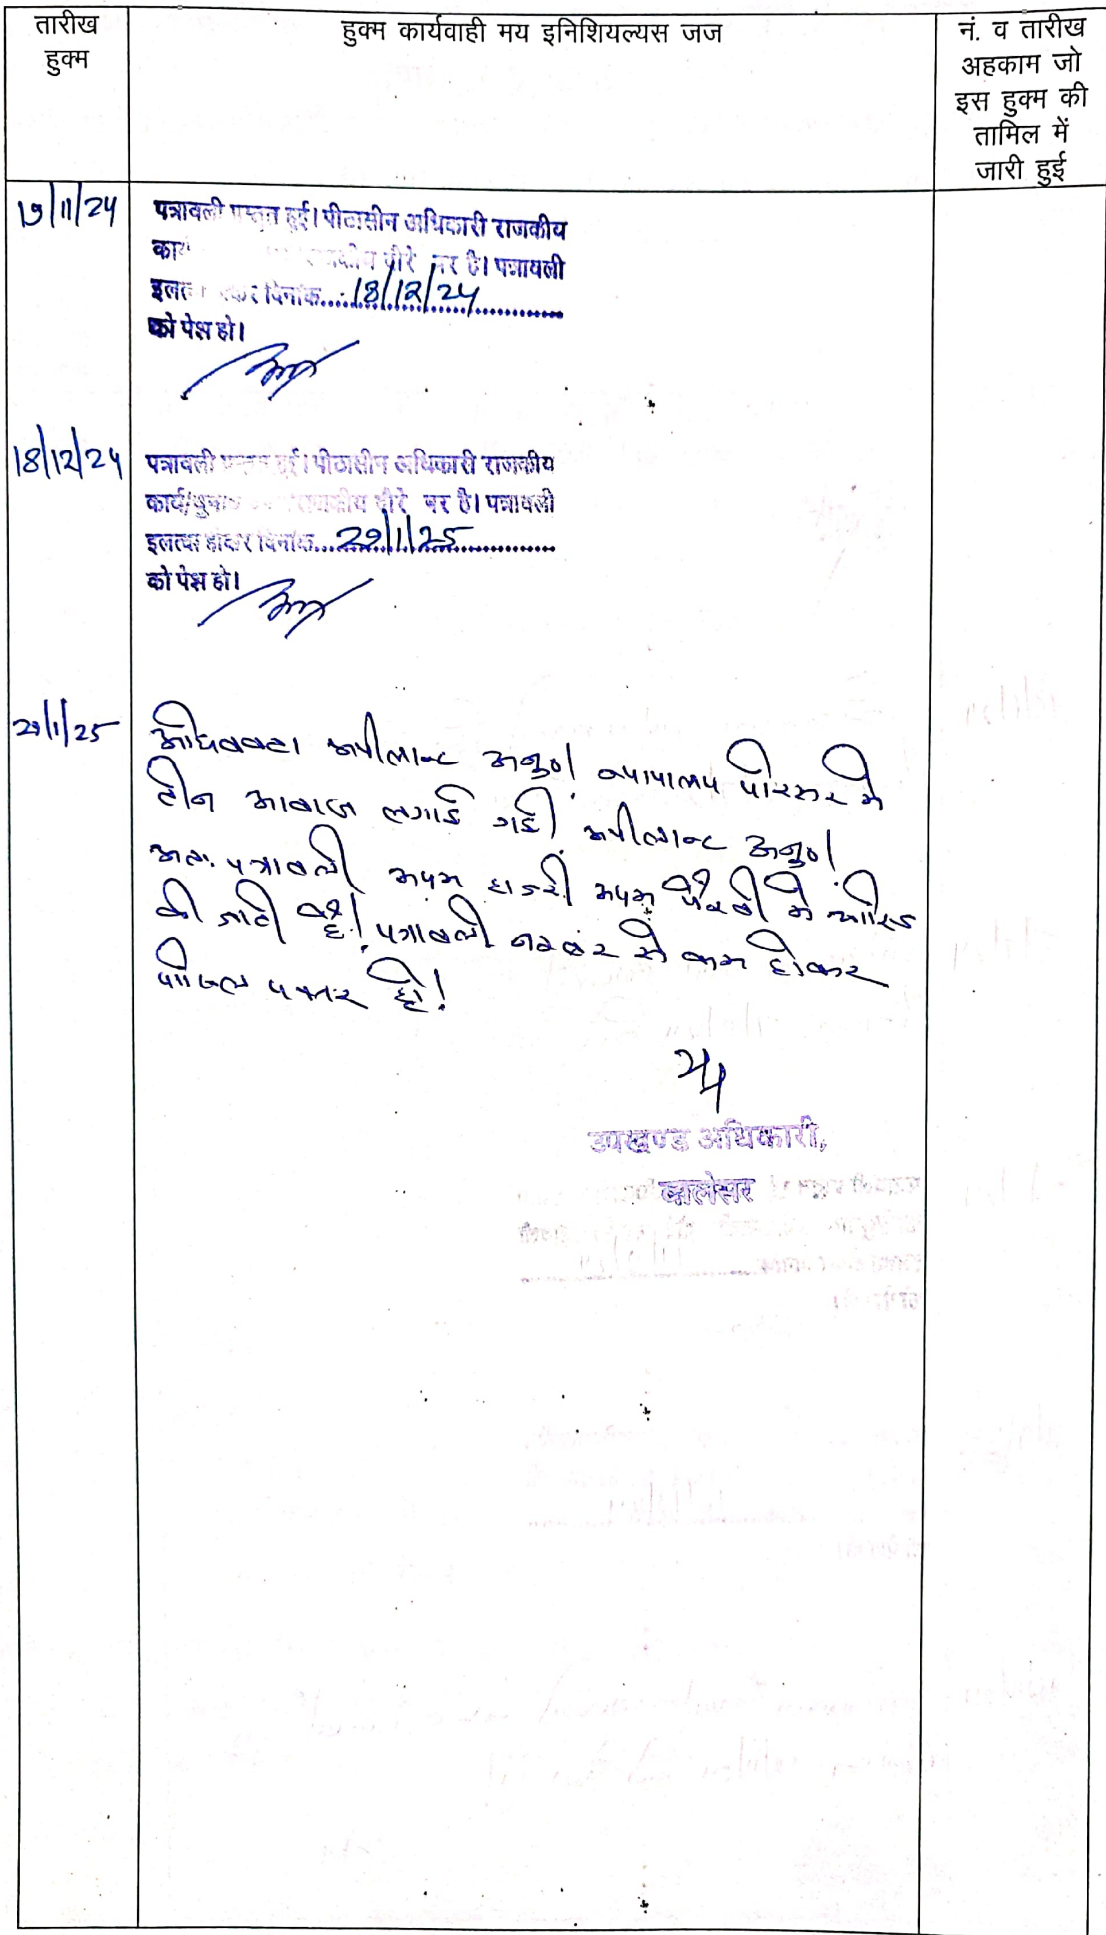 तारीख
हुक्म
हुक्म कार्यवाही मय इनिशियल्यस जज
नं. व तारीख
अहकाम जो
इस हुक्म की
तामिल में
जारी हुई
19/11/24
पत्रावली प्रस्तुत हुई। पीठासीन अधिकारी राजकीय
कार्य राजकीय दौरे पर है। पत्रावली
दिनांक....18/12/24
को पेश हो।
18/12/24
पत्रावली प्रस्तुत हुई। पीठासीन अधिकारी राजकीय
कार्य/चुनाव राजकीय दौरे पर है। पत्रावली
इलत्वा होकर दिनांक....29/1/25
को पेश हो।
29/1/25
अधिवक्ता अपीलान्ट अनु०। न्यायालय परिसर में
तीन आवाज लगाई गई। अपीलान्ट अनु०।
अतः पत्रावली अदम हाजरी अदम पैरवी में खारिज
की जाती है। पत्रावली नम्बर से कम होकर
हो!
उपखण्ड अधिकारी,
बालेसर